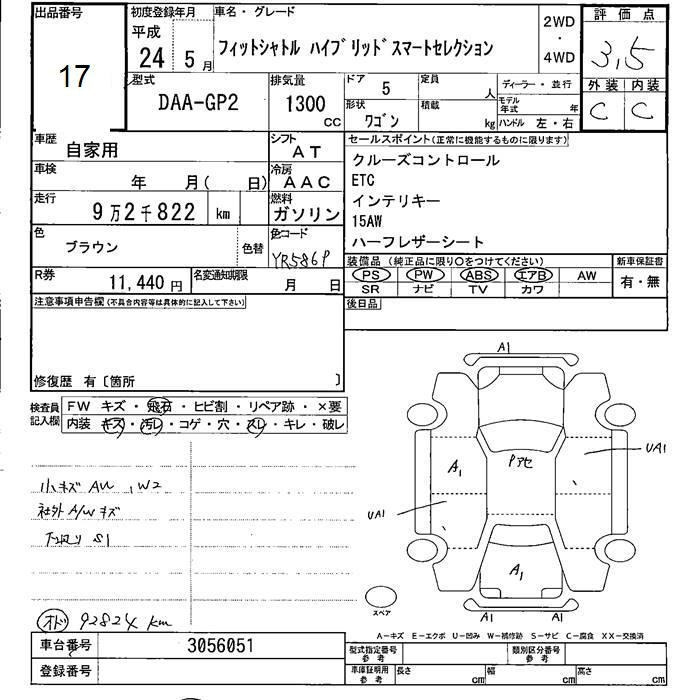 出品番号
17
初度登録年月
平成
24 5 月
車名・グレード
フィットシャトル ハイブリッドスマートセレクション
2WD
・
4WD
評価点
3,5
外装 内装
C C
型式
DAA-GP2
排気量
1300
cc
ドア 5
定員 人
ディーラー・並行
形状
ワゴン
積載 kg
モデル年式 年
ハンドル 左・右
車歴
自家用
シフト
AT
車検
年 月( 日)
冷房
AAC
走行
9万2千822 km
燃料
ガソリン
色
ブラウン
色替
色コード
YR586P
R券
11,440 円
名変通知期限
月 日
セールスポイント(正常に機能するものに限ります)
クルーズコントロール
ETC
インテリキー
15AW
ハーフレザーシート
装備品(純正品に限り○をつけてください)
PS PW ABS エアB AW
SR ナビ TV カワ
新車保証書
有・無
注意事項申告欄(不具合内容等は具体的に記入して下さい)
後日品
修復歴 有〔箇所 〕
検査員
記入欄
FW キズ・飛石・ヒビ割・リペア跡・×要
内装 キズ・汚レ・コゲ・穴・スレ・キレ・破レ
小キズ AW , W2
社外 A/W キズ
下回り S1
オド 92824 km
A1
A1
Pアセ
UA1
UA1
A1
A1
A1
スペア
A―キズ E―エクボ U―凹み W―補修跡 S―サビ C―腐食 XX―交換済
車台番号 3056051
登録番号
型式指定番号
参考
類別区分番号
参考
車庫証明用
参考
長さ cm
幅 cm
高さ cm